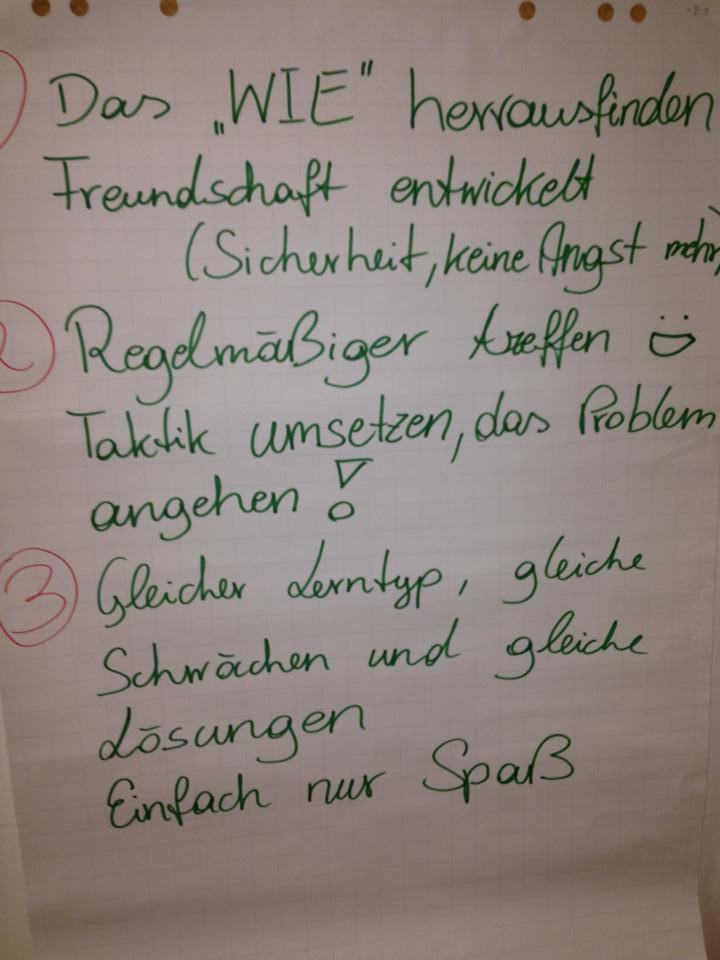 Das „WIE" herrausfinden
Freundschaft entwickelt
(Sicherheit, keine Angst mehr)
2 Regelmäßiger treffen
Taktik umsetzen, das Problem
angehen !
3 Gleicher Lerntyp, gleiche
Schwächen und gleiche
Lösungen
Einfach nur Spaß